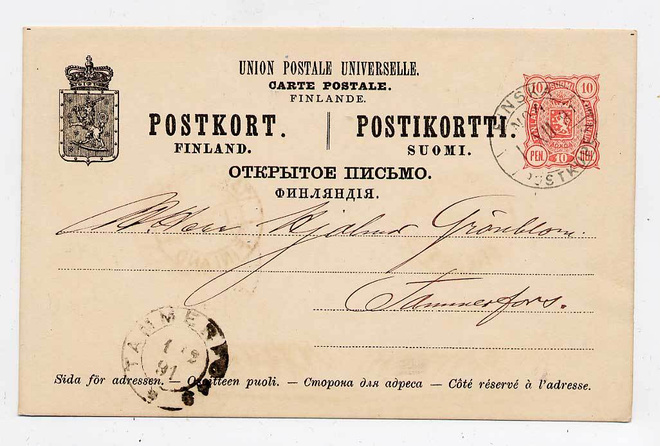 UNION POSTALE UNIVERSELLE.
CARTE POSTALE.
FINLANDE.
POSTKORT. | POSTIKORTTI.
FINLAND. SUOMI.
ОТКРЫТОЕ ПИСЬМО.
ФИНЛЯНДІЯ.
10 10
PEN. 10 ПЕН.
FINSKA
POSTKUP
Herr Hjalmar Grönblom.
Tammerfors.
TAMMERFORS
91
Sida för adressen. — Osoitteen puoli. — Сторона для адреса — Côté réservé à l'adresse.